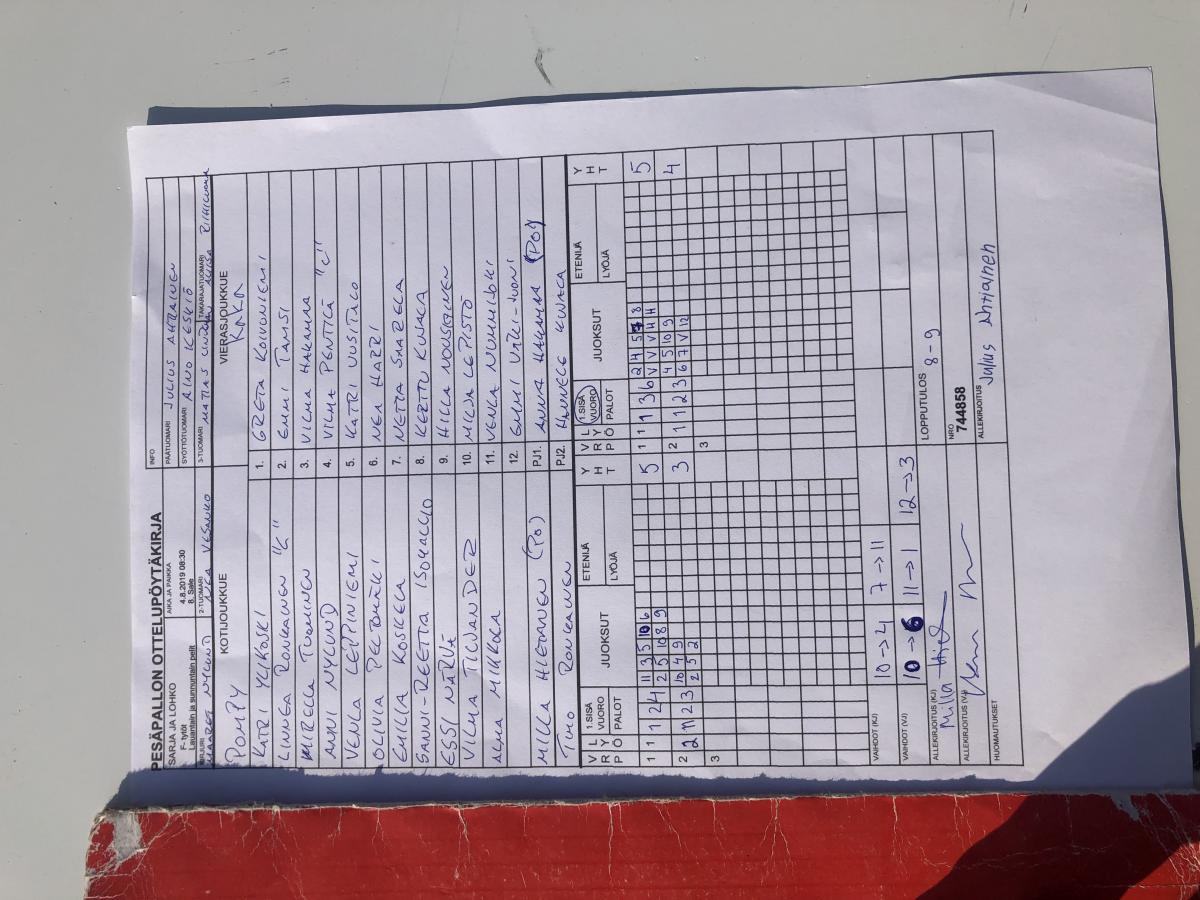 PESÄPALLON OTTELUPÖYTÄKIRJA
SARJA JA LOHKO
F-tytöt
Lauantain ja sunnuntain pelit
AIKA JA PAIKKA
4.8.2019 08:30
8. Sale
INFO
PÄÄTUOMARI JULIUS AHTIAINEN
SYÖTTÖTUOMARI AINO KESKIÖ
KIRJURI NYLUND
2-TUOMARI VESANKO
3-TUOMARI MATIAS
TAKARAJATUOMARI
KOTIJOUKKUE
POMPY
VIERASJOUKKUE
KAKA
KATR YLIKOSKI 1. GRETA KOIVUNIEMI
LINNEA RONKAINEN "C" 2. EMMI TAMSI
MIRELLA TUOMINEN 3. VILMA HAKAMAA
ANNI NYLUND 4. VILMA PENTTILÄ "C"
VENLA LEPPINIEMI 5. KATRI UUSITALO
OLIVIA PELTOMÄKI 6. NEA HARRI
EMILIA KOSKELA 7. NETTA SAARELA
SANNI-REETTA ISOKALLIO 8. KERTTU KUJALA
ESSI NÄRVÄ 9. HILLA NOUSIAINEN
VILMA TICNANDER 10. MILJA LEPISTÖ
ALMA MIKKOLA 11. VENLA NUMMIJOKI
12. EMMI VÄLI-JUONI
MILLA HIETANEN (PO) PJ1. ANNA HAKAMAA (PO)
TIMO RONKAINEN PJ2. HANNELE KUJALA
VRP LYÖ 1.SISÄ VUORO PALOT JUOKSUT ETENIJÄ LYÖJÄ YHT
VRP LYÖ 1.SISÄ VUORO PALOT JUOKSUT ETENIJÄ LYÖJÄ YHT
11 3 5 10 6
1 1 1 24 2 5 10 8 9 5
2 4 5 7 8
1 1 1 3 6 V V V H H 5
10 4 9
2 2 11 23 2 5 2 3
4 5 10 9
2 1 1 2 3 6 7 V 12 4
3
3
VAIHDOT (KJ) 10→4 7→11
VAIHDOT (VJ) 10→6 11→1 12→3
ALLEKIRJOITUS (KJ)
Milla
LOPPUTULOS 8-9
ALLEKIRJOITUS (VJ)
NRO
744858
HUOMAUTUKSET
ALLEKIRJOITUS
Julius Ahtiainen